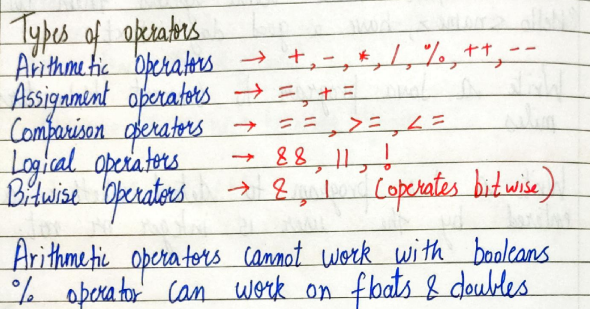 Types of operators
Arithmetic Operators → +, -, *, /, %, ++, --
Assignment operators → =, + =
Comparison operators → = =, > =, < =
Logical operators → &&, ||, !
Bitwise Operators → &, | (operates bitwise)
Arithmetic operators cannot work with booleans
% operator can work on floats & doubles